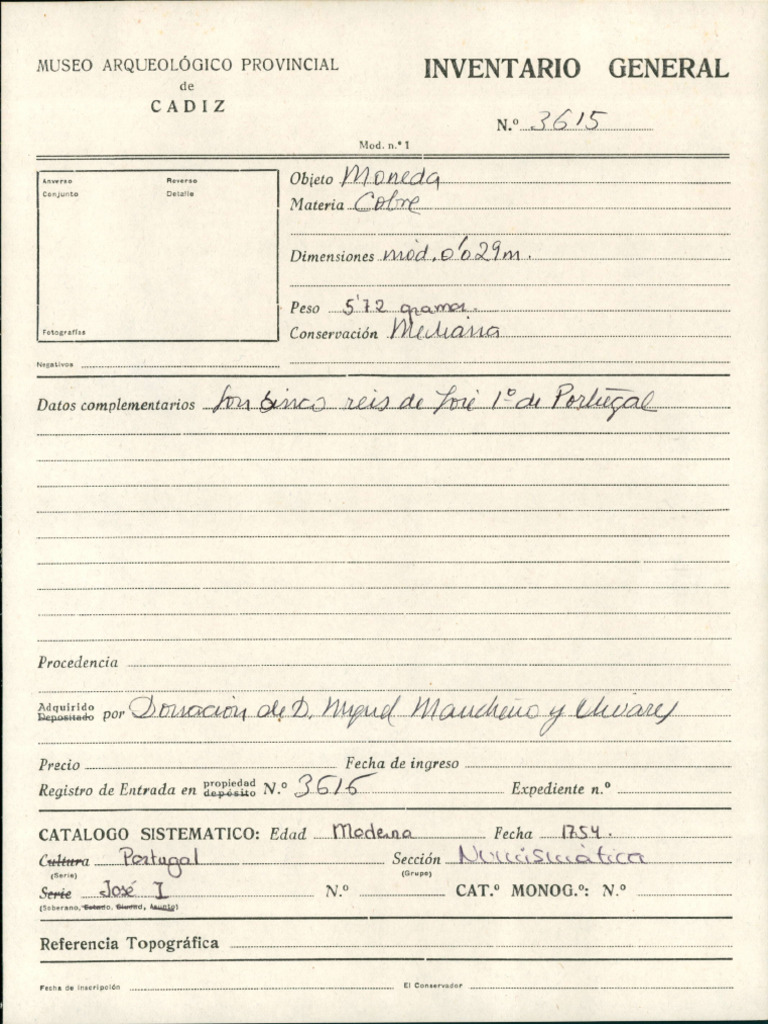 MUSEO ARQUEOLÓGICO PROVINCIAL
de
CADIZ
INVENTARIO GENERAL
N.º 3615
Mod. n.º 1
Anverso Reverso
Conjunto Detalle
Fotografías
Negativos
Objeto Moneda
Materia Cobre
Dimensiones mód. 0'029m.
Peso 5'72 gramos.
Conservación Mediana
Datos complementarios Son cinco reis de José 1º de Portugal
Procedencia
Adquirido
Depositado por Donación de D. Miguel Mancheño y Olivares
Precio Fecha de ingreso
Registro de Entrada en propiedad depósito N.º 3615 Expediente n.º
CATALOGO SISTEMATICO: Edad Moderna Fecha 1754.
Cultura Portugal Sección Numismática
(Serie) (Grupo)
Serie José I N.º CAT.º MONOG.º: N.º
(Soberano, Estado, Ciudad, Asunto)
Referencia Topográfica
Fecha de inscripción El Conservador